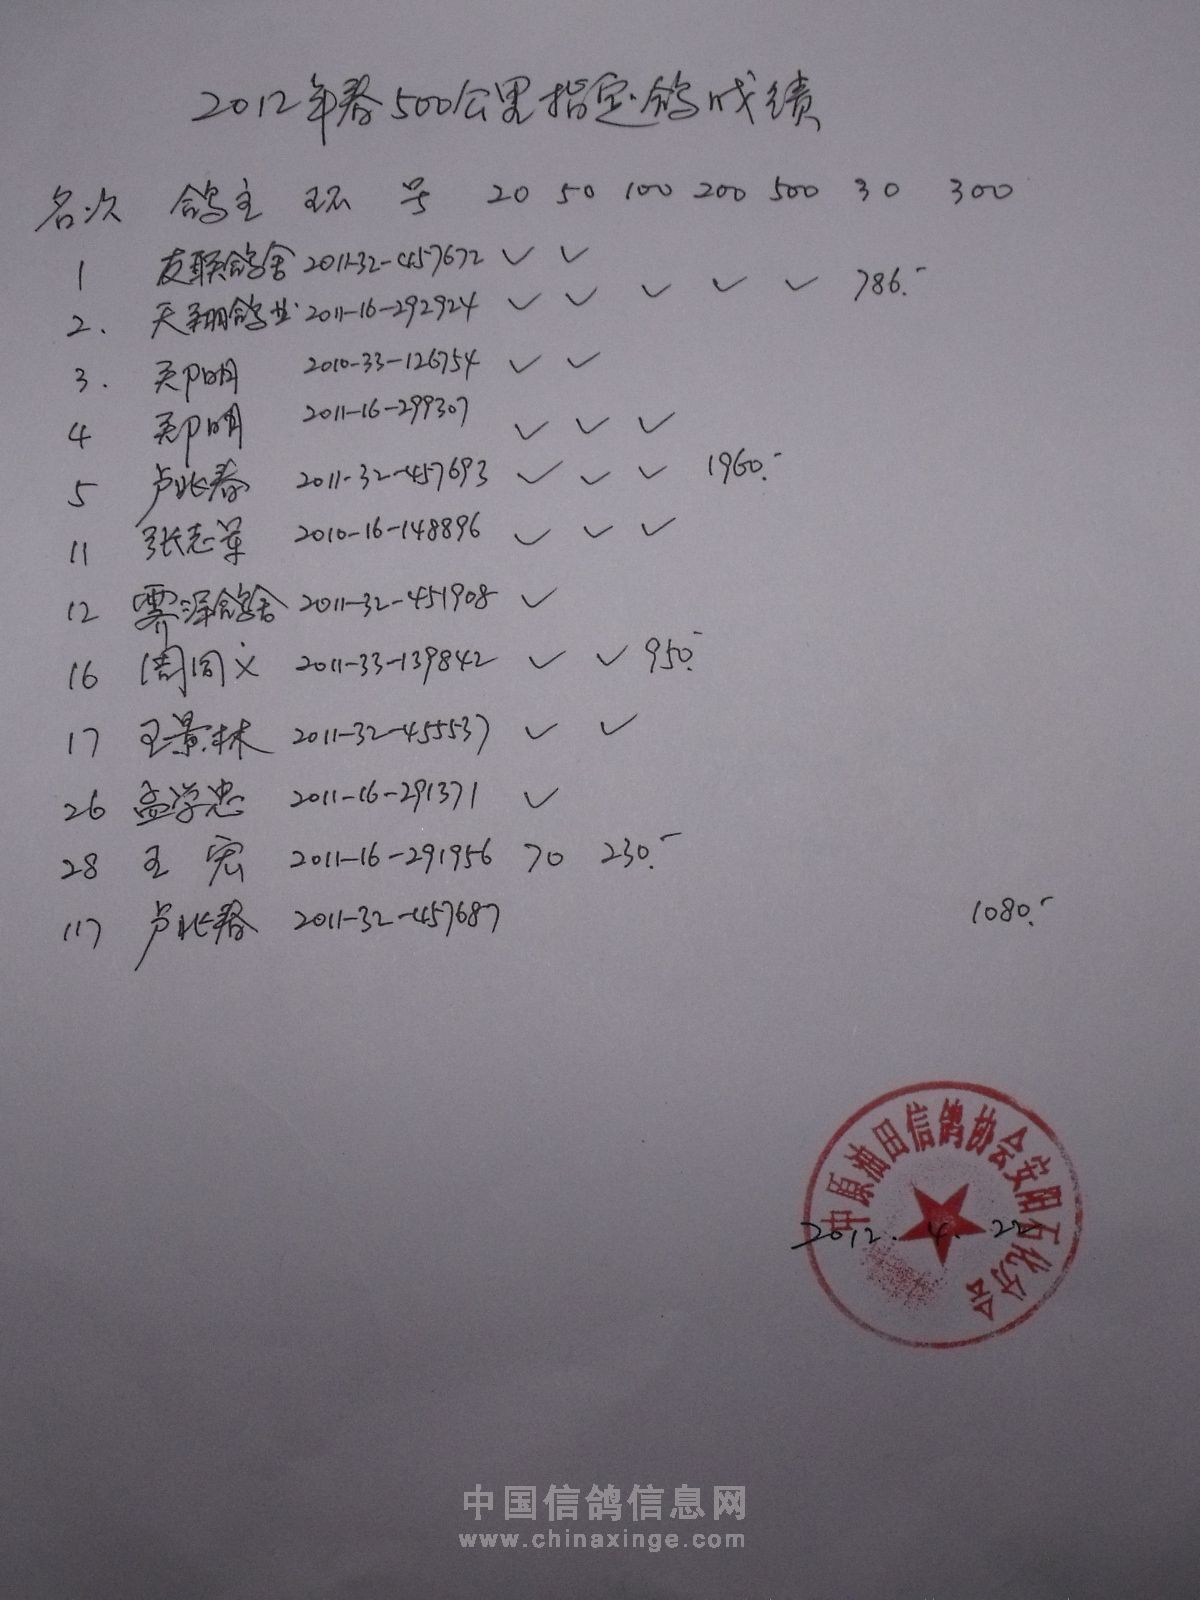 2012年春500公里指定鸽成绩
名次 鸽主 环号 20 50 100 200 500 30 300
1 友联鸽舍 2011-32-457672 ✓ ✓
2. 天翔鸽业 2011-16-292924 ✓ ✓ ✓ ✓ ✓ 786.-
3. 郑明 2010-33-126754 ✓ ✓
4 郑明 2011-16-299307 ✓ ✓ ✓
5 卢兆春 2011-32-457693 ✓ ✓ ✓ 1960.-
11 张志军 2010-16-148896 ✓ ✓ ✓
12 霁泽鸽舍 2011-32-451908 ✓
16 周同义 2011-33-139842 ✓ ✓ 950.-
17 王景林 2011-32-455537 ✓ ✓
26 孟学忠 2011-16-291371 ✓
28 王宏 2011-16-291956 70 230.-
117 卢兆春 2011-32-457687 1080.-
中原油田信鸽协会安阳石化分会
2012.4.22
中国信鸽信息网
www.chinaxinge.com